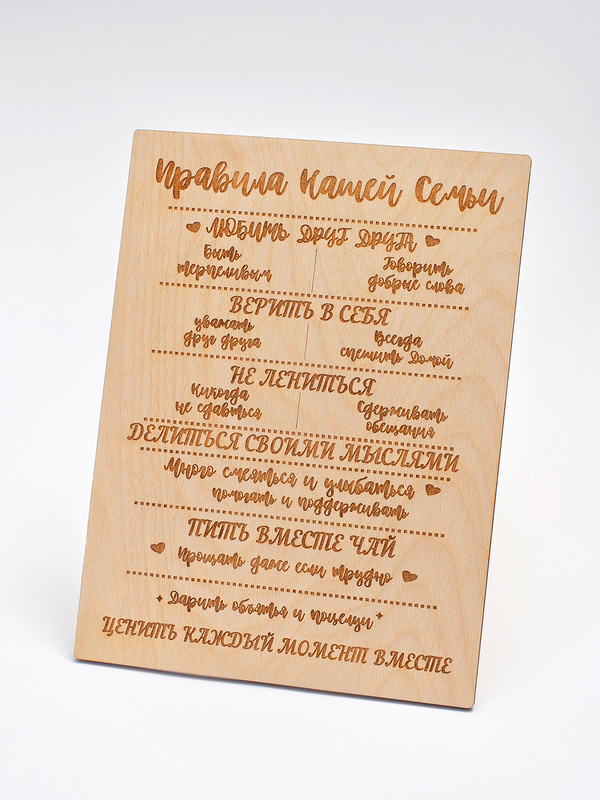 Правила Нашей Семьи
ЛЮБИТЬ ДРУГ ДРУГА
Быть
терпеливым
Говорить
добрые слова
ВЕРИТЬ В СЕБЯ
уважать
друг друга
Всегда
спешить Домой
НЕ ЛЕНИТЬСЯ
Никогда
не сдаваться
Сдерживать
обещания
ДЕЛИТЬСЯ СВОИМИ МЫСЛЯМИ
Много смеяться и улыбаться
помогать и поддерживать
ПИТЬ ВМЕСТЕ ЧАЙ
Прощать даже если трудно
Дарить объятья и поцелуи
ЦЕНИТЬ КАЖДЫЙ МОМЕНТ ВМЕСТЕ